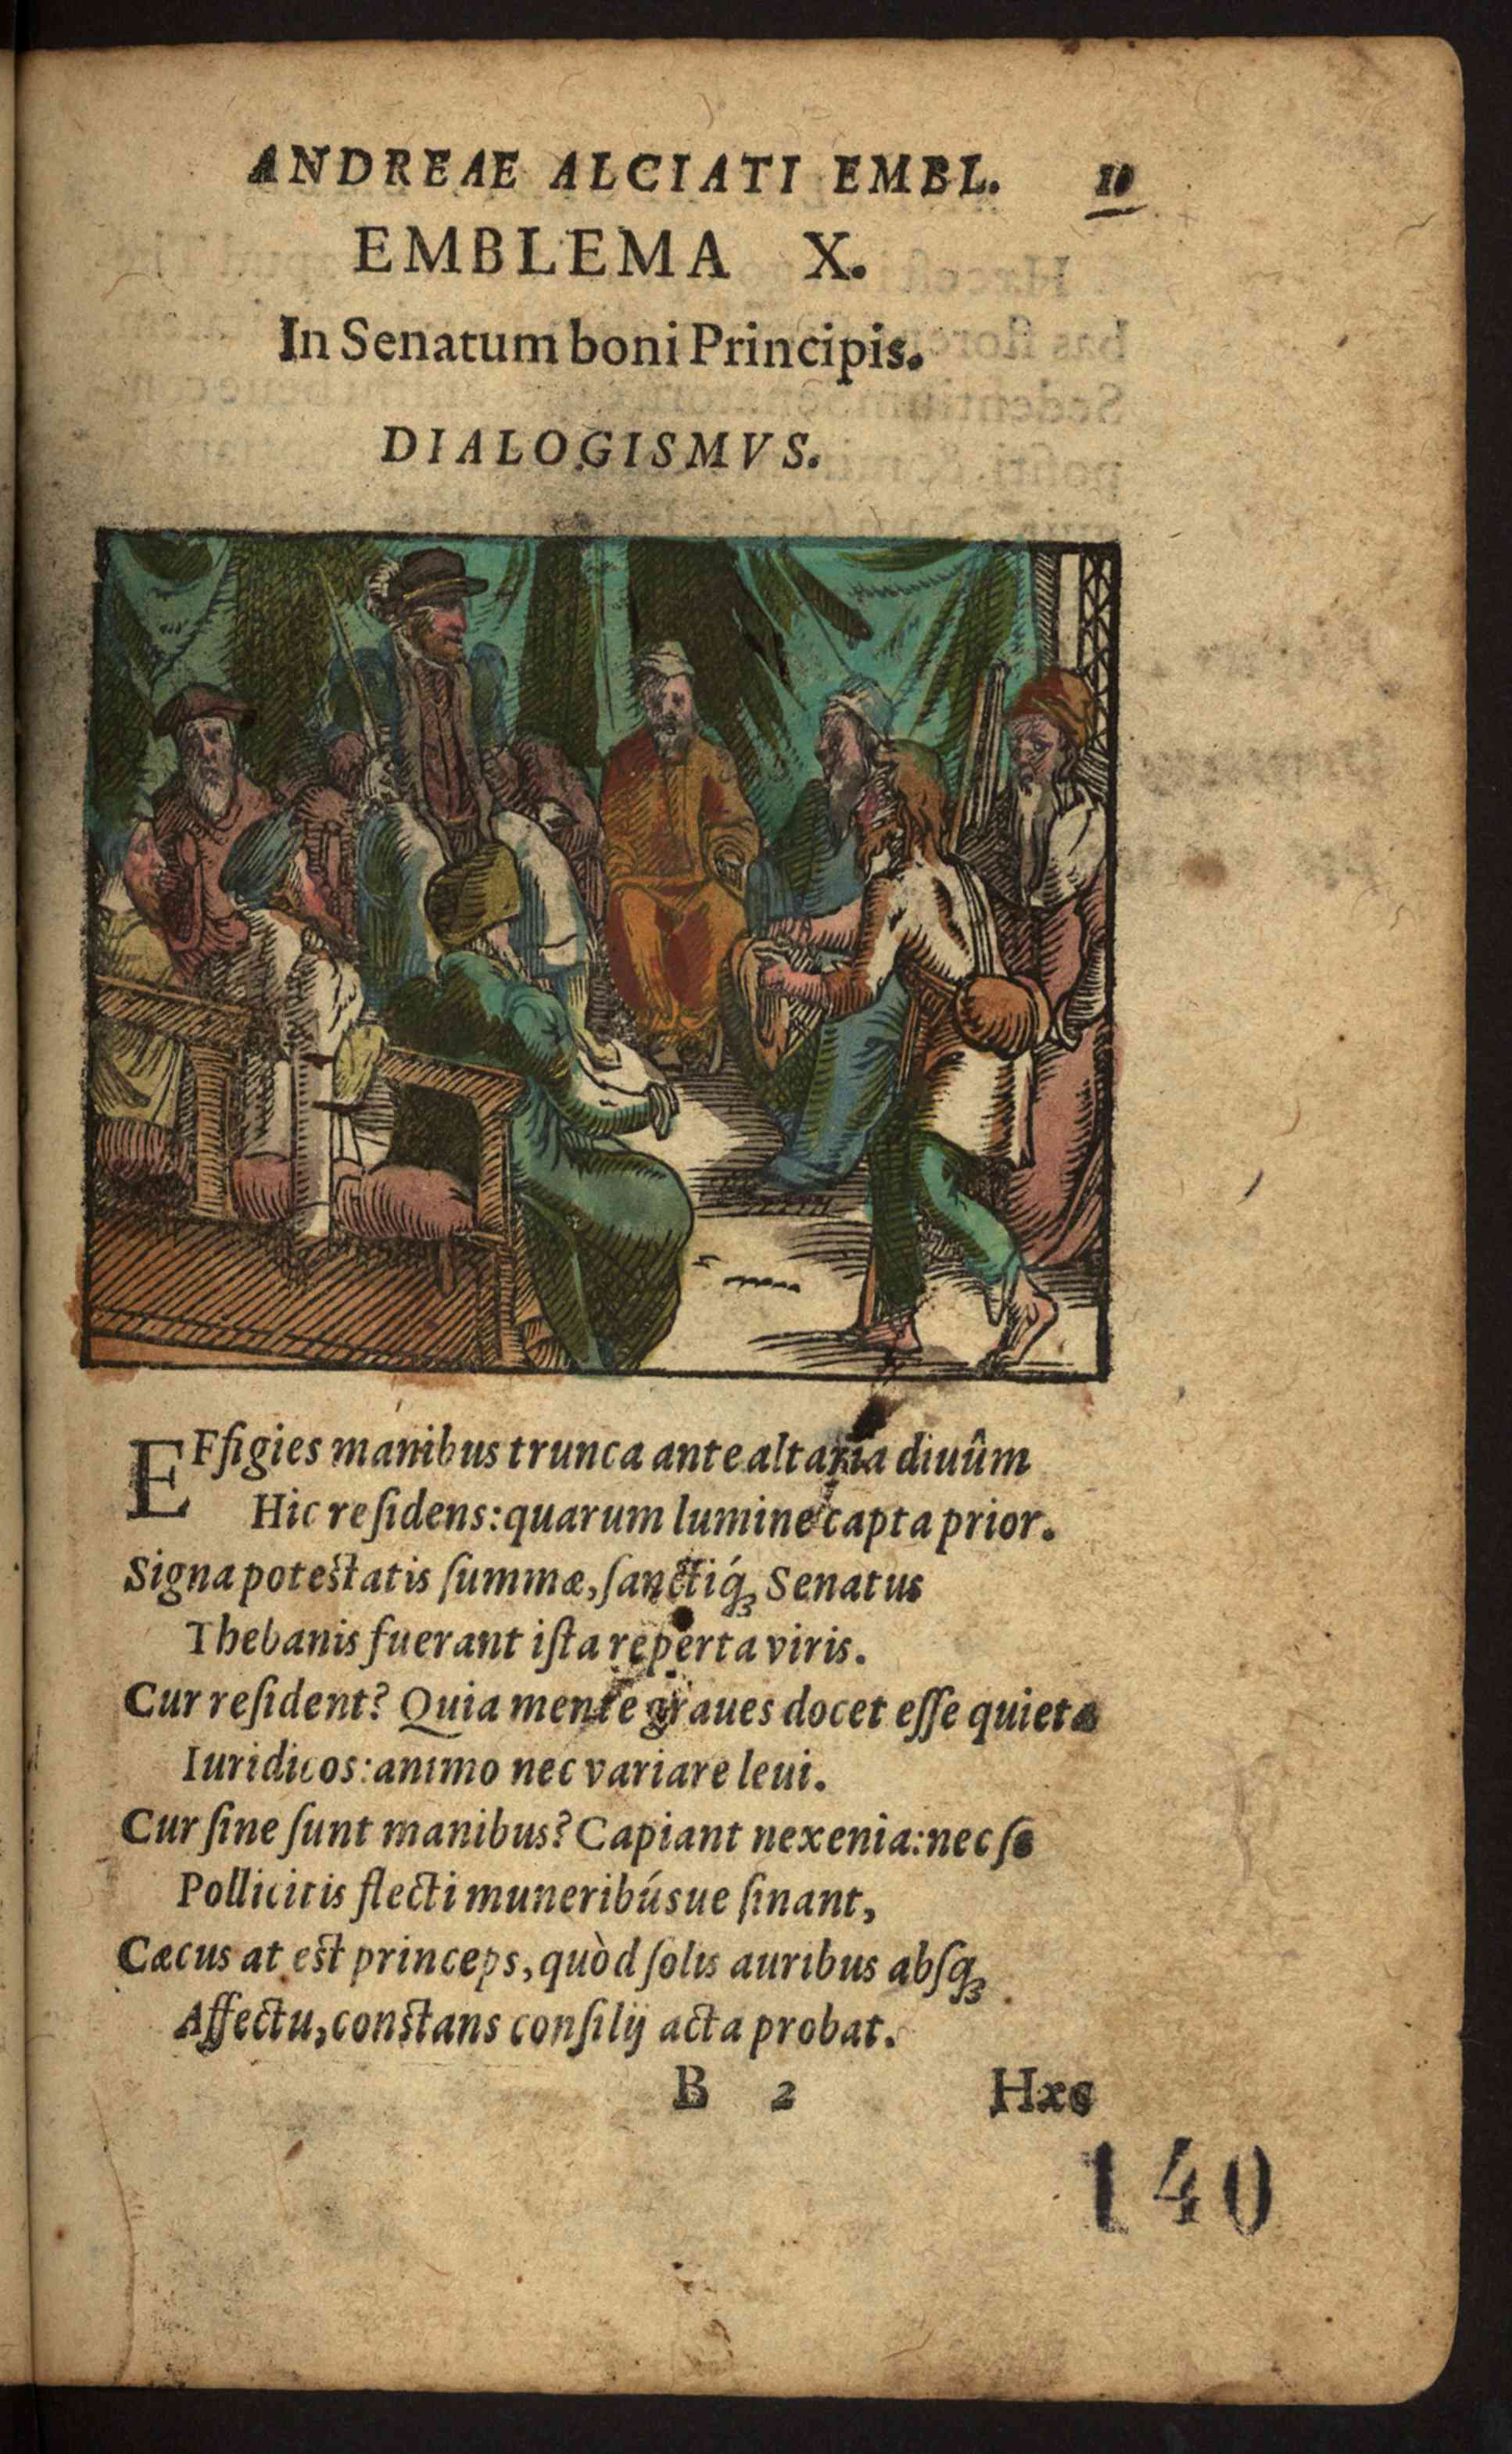 ANDREAE ALCIATI EMBL. 10
EMBLEMA X.
In Senatum boni Principis.
DIALOGISMVS.
EFfigies manibus trunca ante altaria diuûm
Hic reſidens: quarum lumine capta prior.
Signa poteſtatis ſummæ, ſanctiq́ꝫ Senatus
Thebanis fuerant iſta reperta viris.
Cur reſident? Quia mente graues docet eſſe quieta
Iuridicos: animo nec variare leui.
Cur ſine ſunt manibus? Capiant ne xenia: nec ſe
Pollicitis flecti muneribúsue ſinant,
Cæcus at eſt princeps, quòd ſolis auribus abſqꝫ
Affectu, conſtans conſilij acta probat.
B 2 Hæc
140